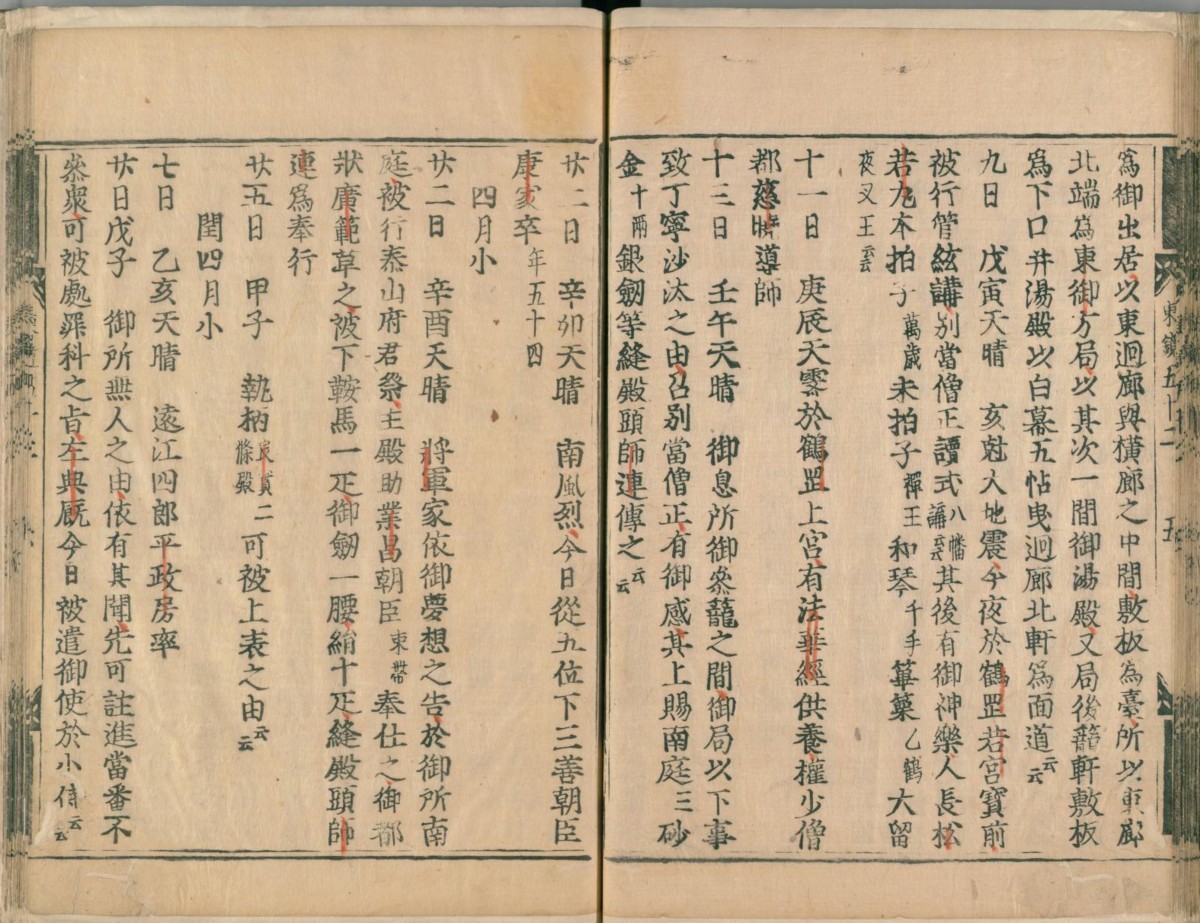 為御出居以東廻廊與横廊之中間敷板為臺所以東廊
北端為東御方局以其次一間御湯殿又局後籠軒敷板
爲下口并湯殿以白幕五帖曳廻廊北軒爲面道云云
九日　戊寅天晴　亥尅大地震今夜於鶴罡若宮寳前
被行管絃講別當僧正讀式八幡講云云其後有御神樂人長松
若丸本拍子萬歳末拍子禪王和琴千手篳篥乙鶴大留
夜叉王云云
十一日　庚辰天霽於鶴罡上宮有法華經供養權少僧
都慈暁導師
十三日　壬午天晴　御息所御參籠之間御局以下事
致丁寧沙汰之由召別當僧正有御感其上賜南庭三砂
金十兩銀劒等縫殿頭師連傳之云云
東鏡五十二　五
廿二日　辛卯天晴　南風烈今日從五位下三善朝臣
康家卒年五十四
四月小
廿二日　辛酉天晴　將軍家依御夢想之告於御所南
庭被行泰山府君祭主殿助業昌朝臣束帶奉仕之御都
狀廣範草之被下鞍馬一疋御劒一腰絹十疋縫殿頭師
連爲奉行
廿五日　甲子　執柄良實二條殿可被上表之由云云
閏四月小
七日　乙亥天晴　遠江四郎平政房卒
廿日戊子　御所無人之由依有其聞先可註進當番不
參衆可被處罪科之旨左典厩今日被遣御使於小侍云云